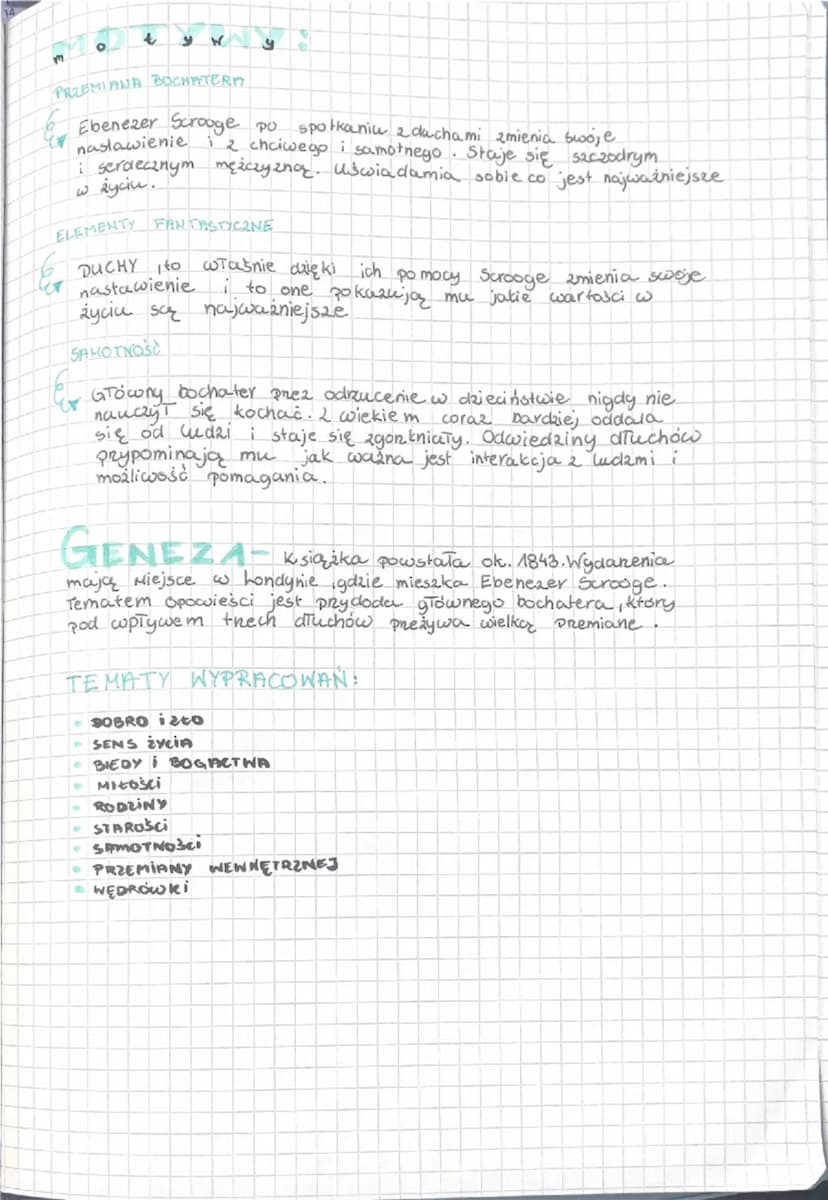 14
MOTYWY:
motywy
PRZEMIANA BOCHATERA
Ebenezer Scrooge po spotkaniu z duchami zmienia swoje
nastawienie i z chciwego i samotnego. Staje się szczodrym
i serdecznym mężczyzną. Uświadamia sobie co jest najważniejsze
w życiu.
ELEMENTY FANTASTYCZNE
DUCHY, to właśnie dzięki ich pomocy Scrooge zmienia swoje
nastawienie i to one pokazują mu jakie wartości w
życiu są najważniejsze
SAMOTNOŚĆ
Główny bochater przez odrzucenie w dzieciństwie nigdy nie
nauczył się kochać. Z wiekiem coraz bardziej oddala
się od ludzi i staje się zgorzkniały. Odwiedziny dłuchów
przypominają mu jak ważna jest interakcja z ludzmi i
możliwość pomagania.
GENEZA- Książka powstała ok. 1843. Wydarzenia
mają miejsce w Londynie, gdzie mieszka Ebenezer Scrooge.
Tematem opowieści jest przygoda głównego bochatera, który
pod wpływem trzech dłuchów przeżywa wielką przemiane.
TEMATY WYPRACOWAŃ:
• DOBRO i ZŁO
• SENS ŻYCIA
• BIEDY i BOGACTWA
• MIŁOŚCI
• RODZINY
• STAROŚCI
• SAMOTNOŚCI
• PRZEMIANY WEWNĘTRZNEJ
• WĘDRÓWKI